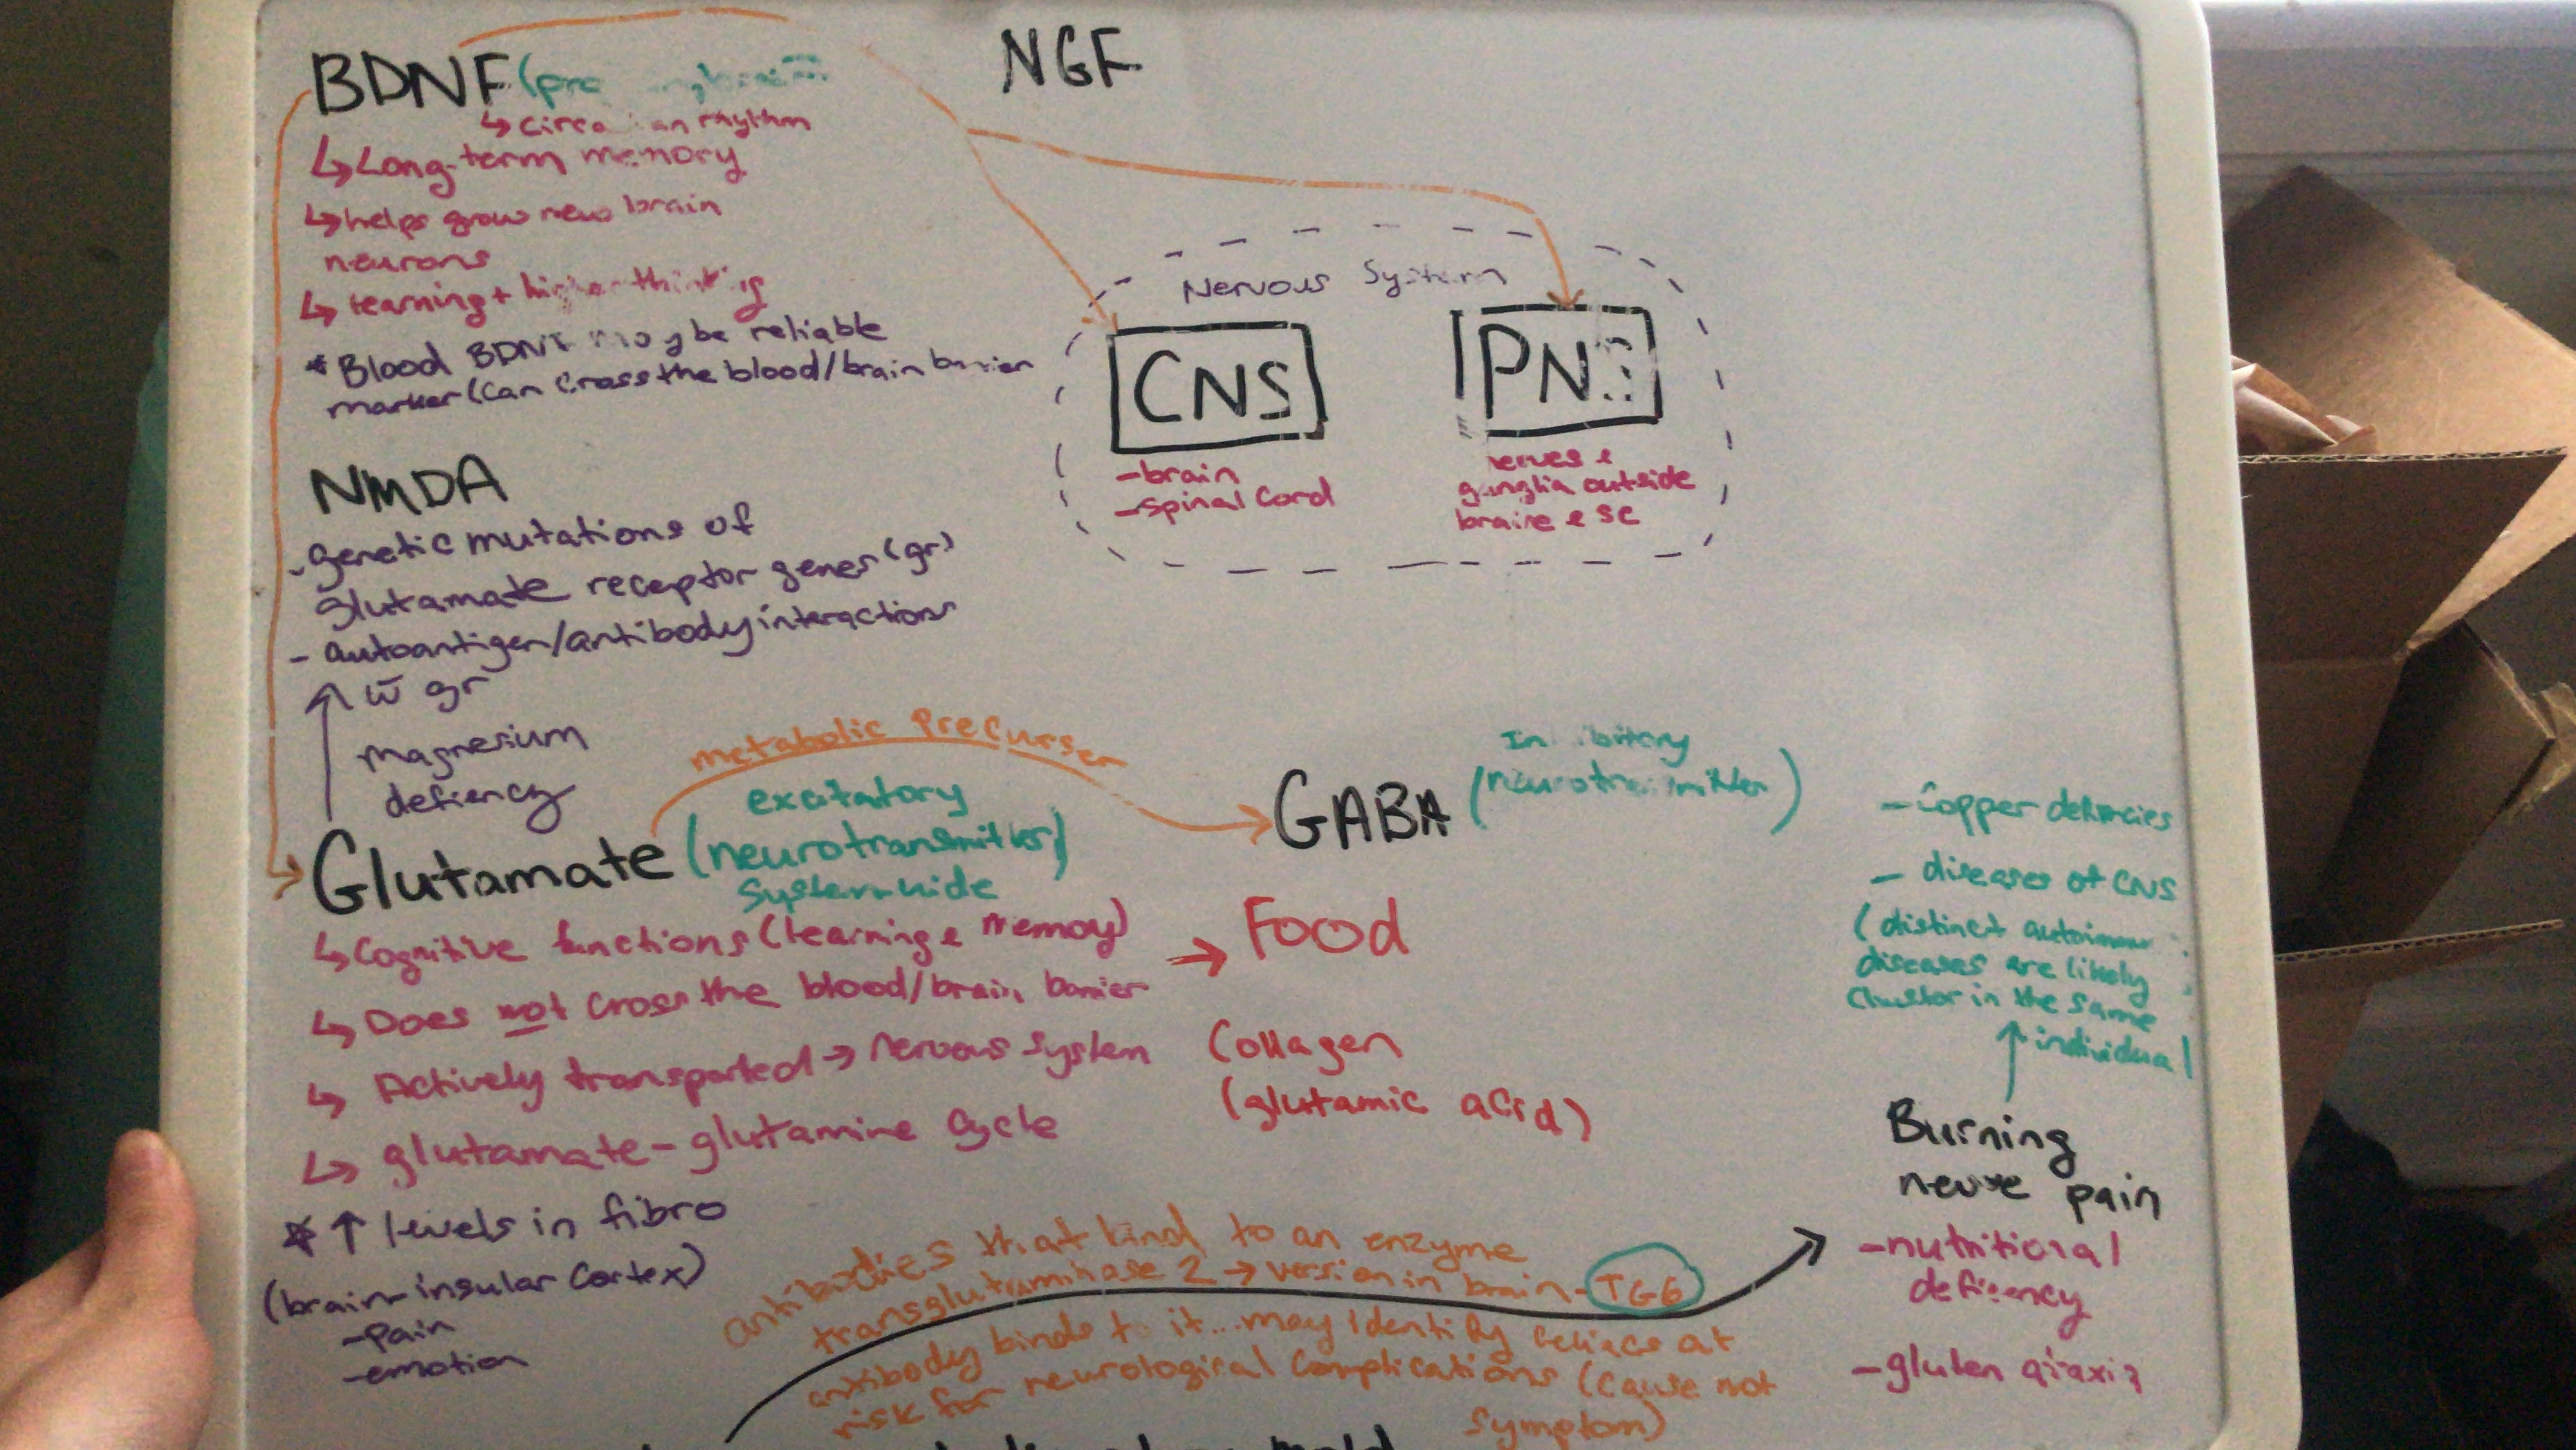 BDNF
NGF
Long-term memory
helps grow new brain
neurons
learning + higher thinking
*Blood BDNF may be reliable
marker (Can Cross the blood/brain barrier
Nervous System
CNS
-brain
-spinal Cord
ganglia outside
NMDA
- genetic mutations of
glutamate receptor genes (gr)
- autoantigen/antibody interactions
↑ w̄ gr
magnesium
defiency
metabolic Precurser
Glutamate
excitatory
(neurotransmitter)
System-wide
GABA
Inhibitory
(neurotransmitter)
↳ Cognitive functions (learning & memoy)
↳ Does not cross the blood/brain barrier
↳ Actively transported → nervous system
↳ glutamate-glutamine cycle
→ Food
Collagen
(glutamic acid)
* ↑ levels in fibro
(brain-insular Cortex)
-pain
-emotion
antibodies that bind to an enzyme
transglutaminase 2 → version in brain - TG6
antibody binds to it...may identify celiacs at
risk for neurological complications (cause not
symptom)
- Copper
- diseases of CNS
(distinct
diseases are likely
cluster in the same
individual
Burning
nerve pain
-nutritional
-gluten